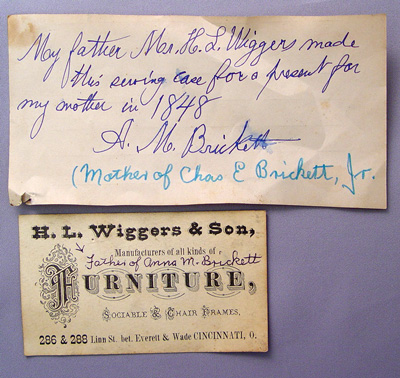 My father Mr. H. L. Wiggers made
this sewing case for a present for
my mother in 1848
A. M. Brickett
(Mother of Chas E Brickett, Jr.
H. L. Wiggers & Son,
Manufacturers of all kinds of
Father of Anna M. Brickett
FURNITURE,
SOCIABLE & CHAIR FRAMES,
286 & 288 Linn St. bet. Everett & Wade CINCINNATI, O.